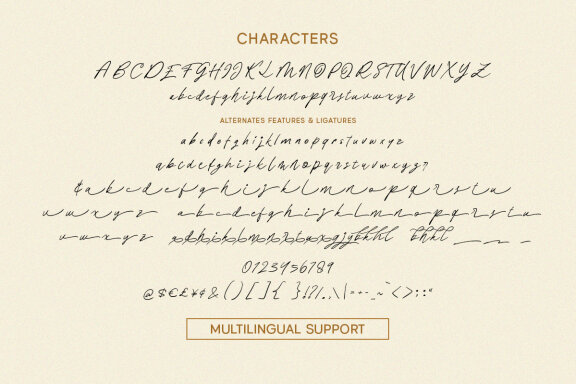 CHARACTERS
ABCDEFGHIJKLMNOPQRSTUVWXYZ
abcdefghijklmnopqrstuvwxyz
ALTERNATES FEATURES & LIGATURES
abcdefghijklmnopqrstuvwxyz
abcdefghijklmnopqrstuvwxyz
abcdefghijklmnopqrstu
vwxyz abcdefghijklmnopqrstu
vwxyz
0123456789
@$€£¥¢&()[]{}!?/..,\|=+-_~^<>;:"
MULTILINGUAL SUPPORT